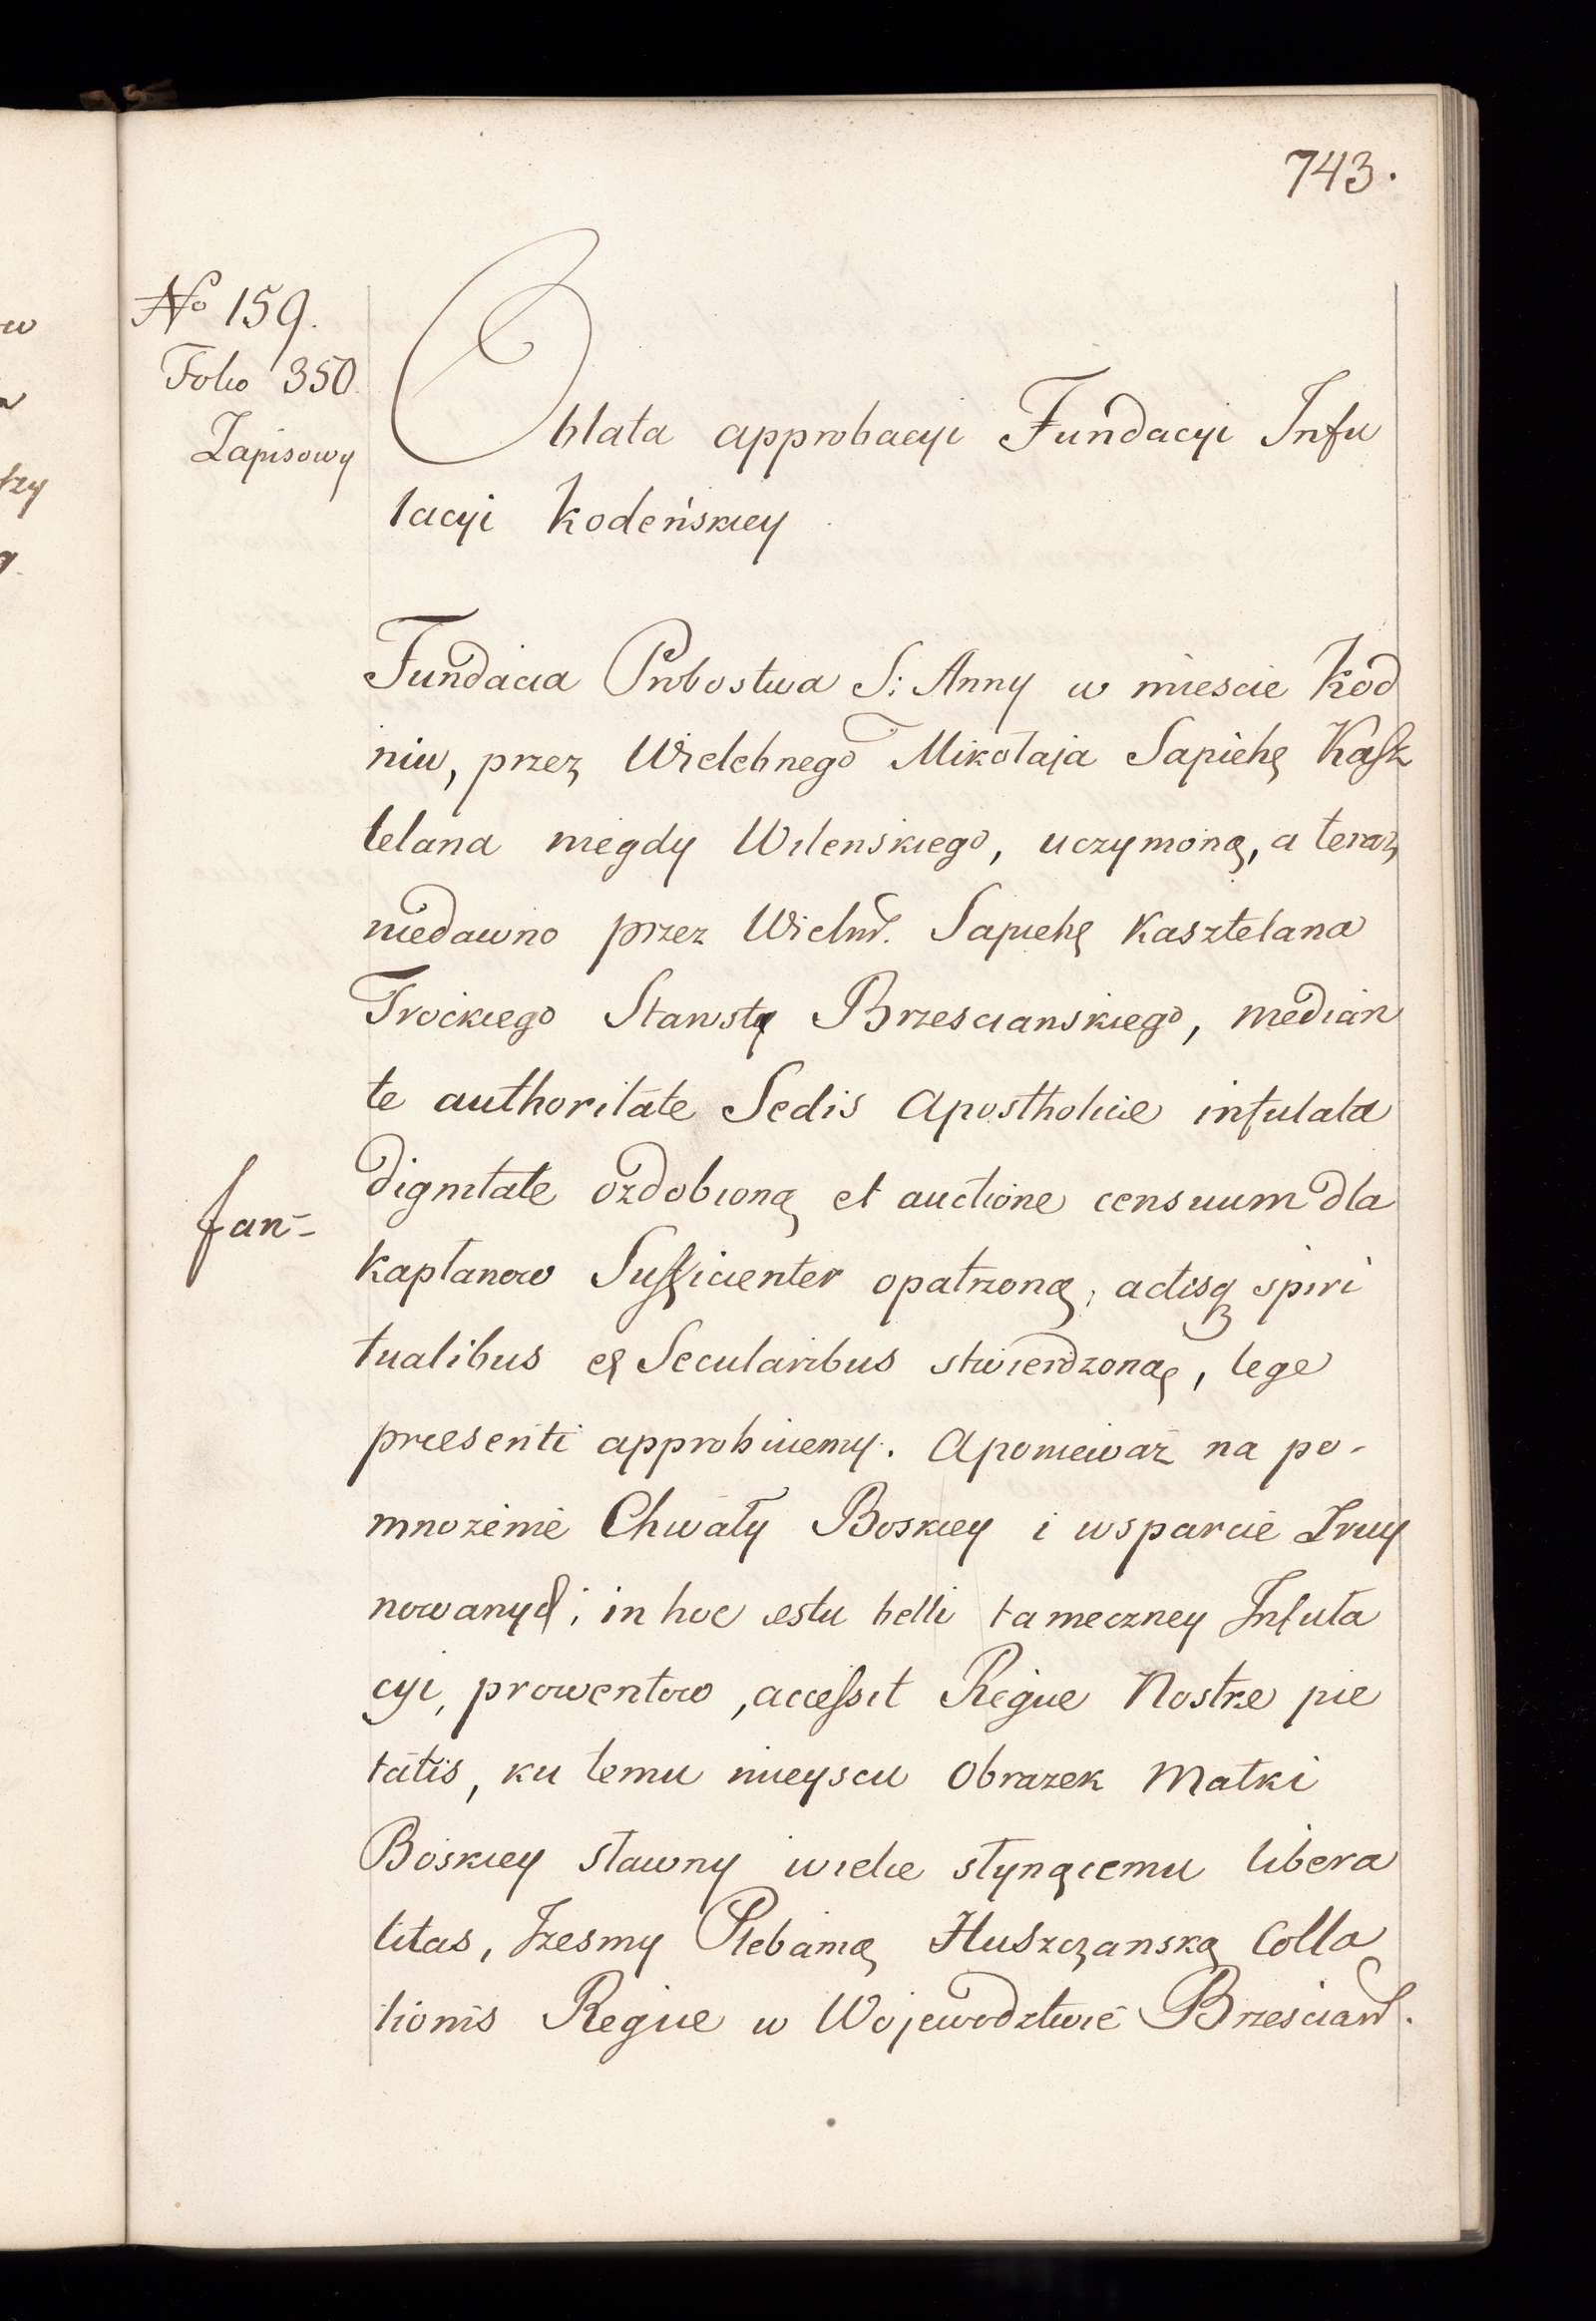 743.
No 159.
Folio 350
Zapisowy
Oblata approbacyi Fundacyi Infu
lacyi Kodeńskiey
Fundacia Probostwa S: Anny w miescie Kod
niu, przez Wielebnego Mikołaja Sapiehę Kasz
telana niegdy Wilenskiego, uczynioną, a teraz
niedawno przez Wielm. Sapiehę Kasztelana
Trockiego Starostę Brzescianskiego, median
te authoritate Sedis Apostholicæ infulata
dignitate ozdobioną et auctione censuum dla
fan-
kapłanow Sufficienter opatrzoną, actisq spiri
tualibus et Secularibus stwierdzoną, lege
præsenti approbuiemy. Aponieważ na po-
mnożenie Chwały Boskiey i wsparcie Zruy
nowanych, in hoc æstu belli tameczney Infuła
cyi, prowentow, accessit Regiæ Nostræ pie
tatis, ku temu mieyscu Obrazek Matki
Boskiey sławny wielce słynącemu libera
litas, Iżesmy Plebanią Huszczanską Colla
tionis Regiæ w Wojewodztwie Brzescian.